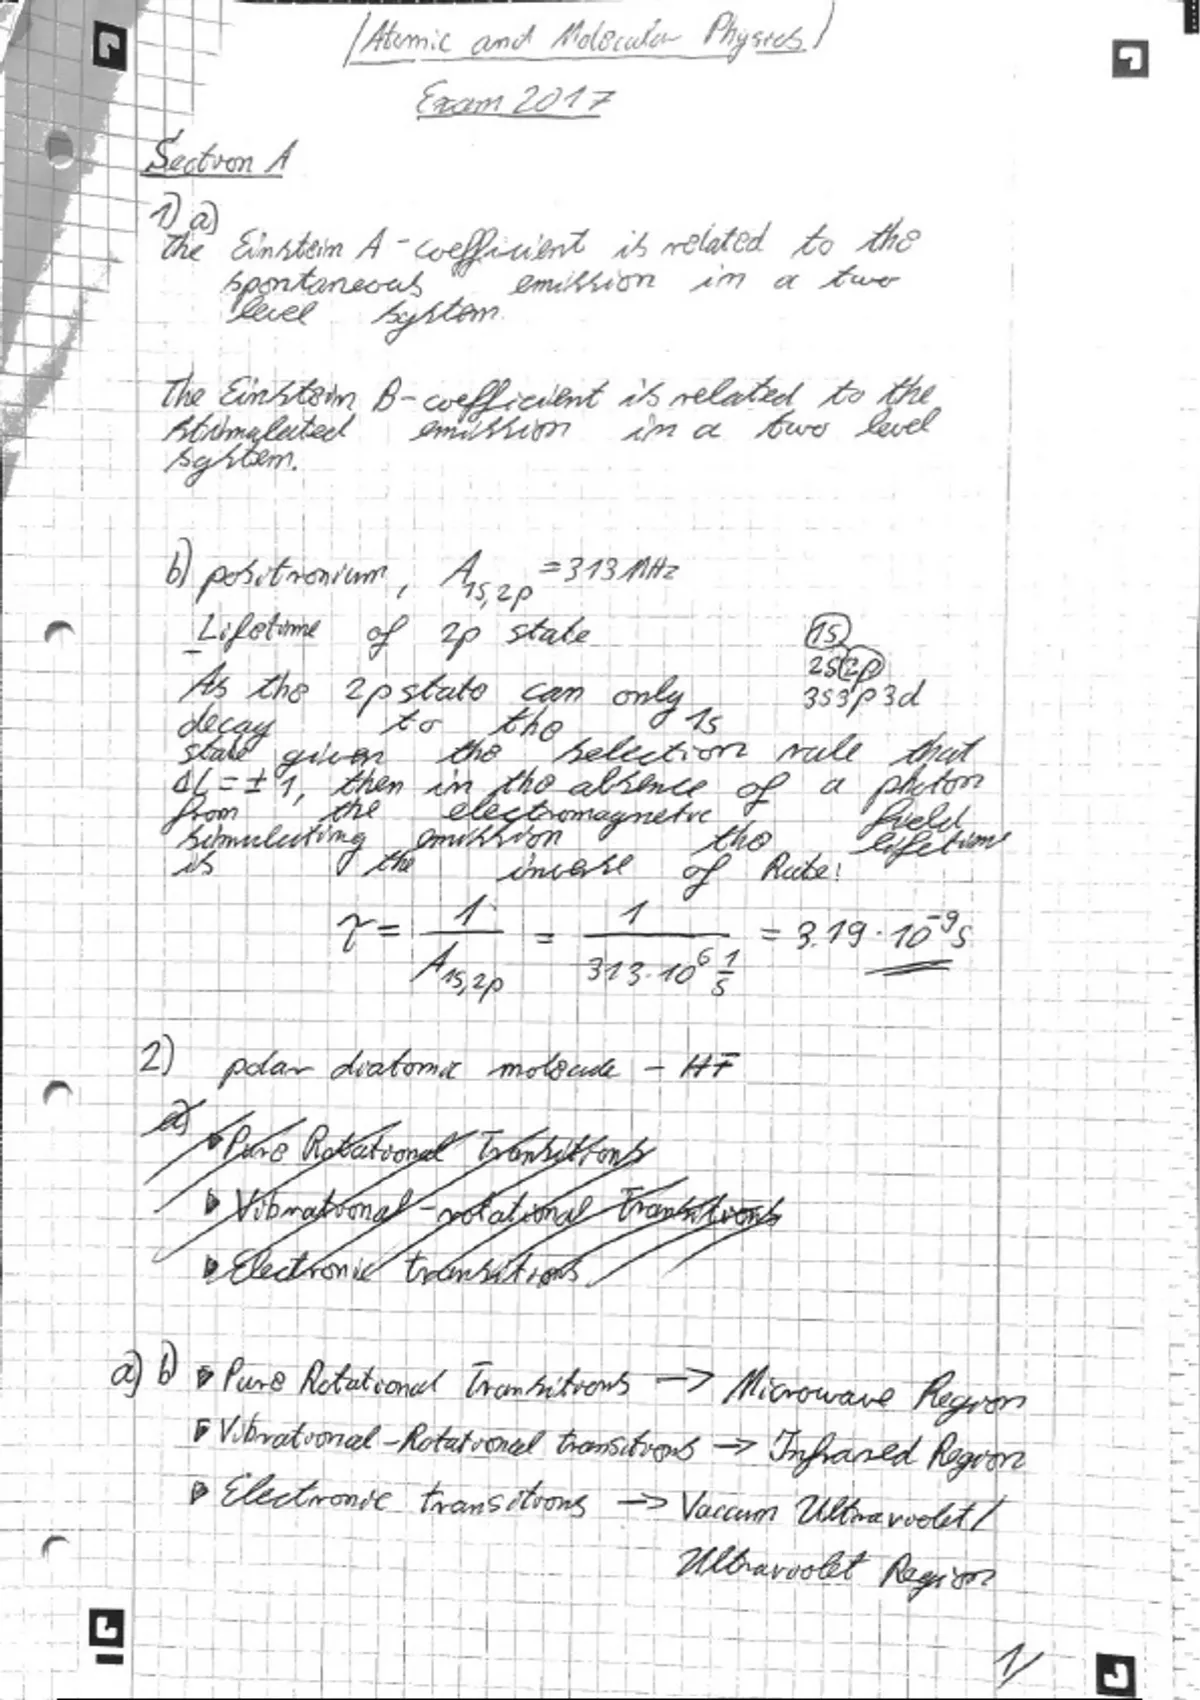 Atomic and Molecular Physics
Exam 2017
Section A
1) a)
The Einstein A-coefficient is related to the
spontaneous emission in a two
level system.
The Einstein B-coefficient is related to the
stimulated emission in a two level
system.
b) positronium, A1s,2p = 313 MHz
Lifetime of 2p state
1s
2s 2p
3s 3p 3d
As the 2p state can only
decay to the 1s
state given the selection rule that
ΔL = ± 1, then in the absence of a photon
from the electromagnetic field
simulating emission the lifetime
is the inverse of Rate:
τ = 1/A1s,2p = 1/(313·10^6 1/s) = 3.19·10^-9 s
2) polar diatomic molecule – HF
a)
Pure Rotational Transitions
Vibrational-rotational Transitions
Electronic transitions
a) b) Pure Rotational Transitions → Microwave Region
Vibrational-Rotational transitions → Infrared Region
Electronic transitions → Vaccum Ultraviolet/
Ultraviolet Region
1/